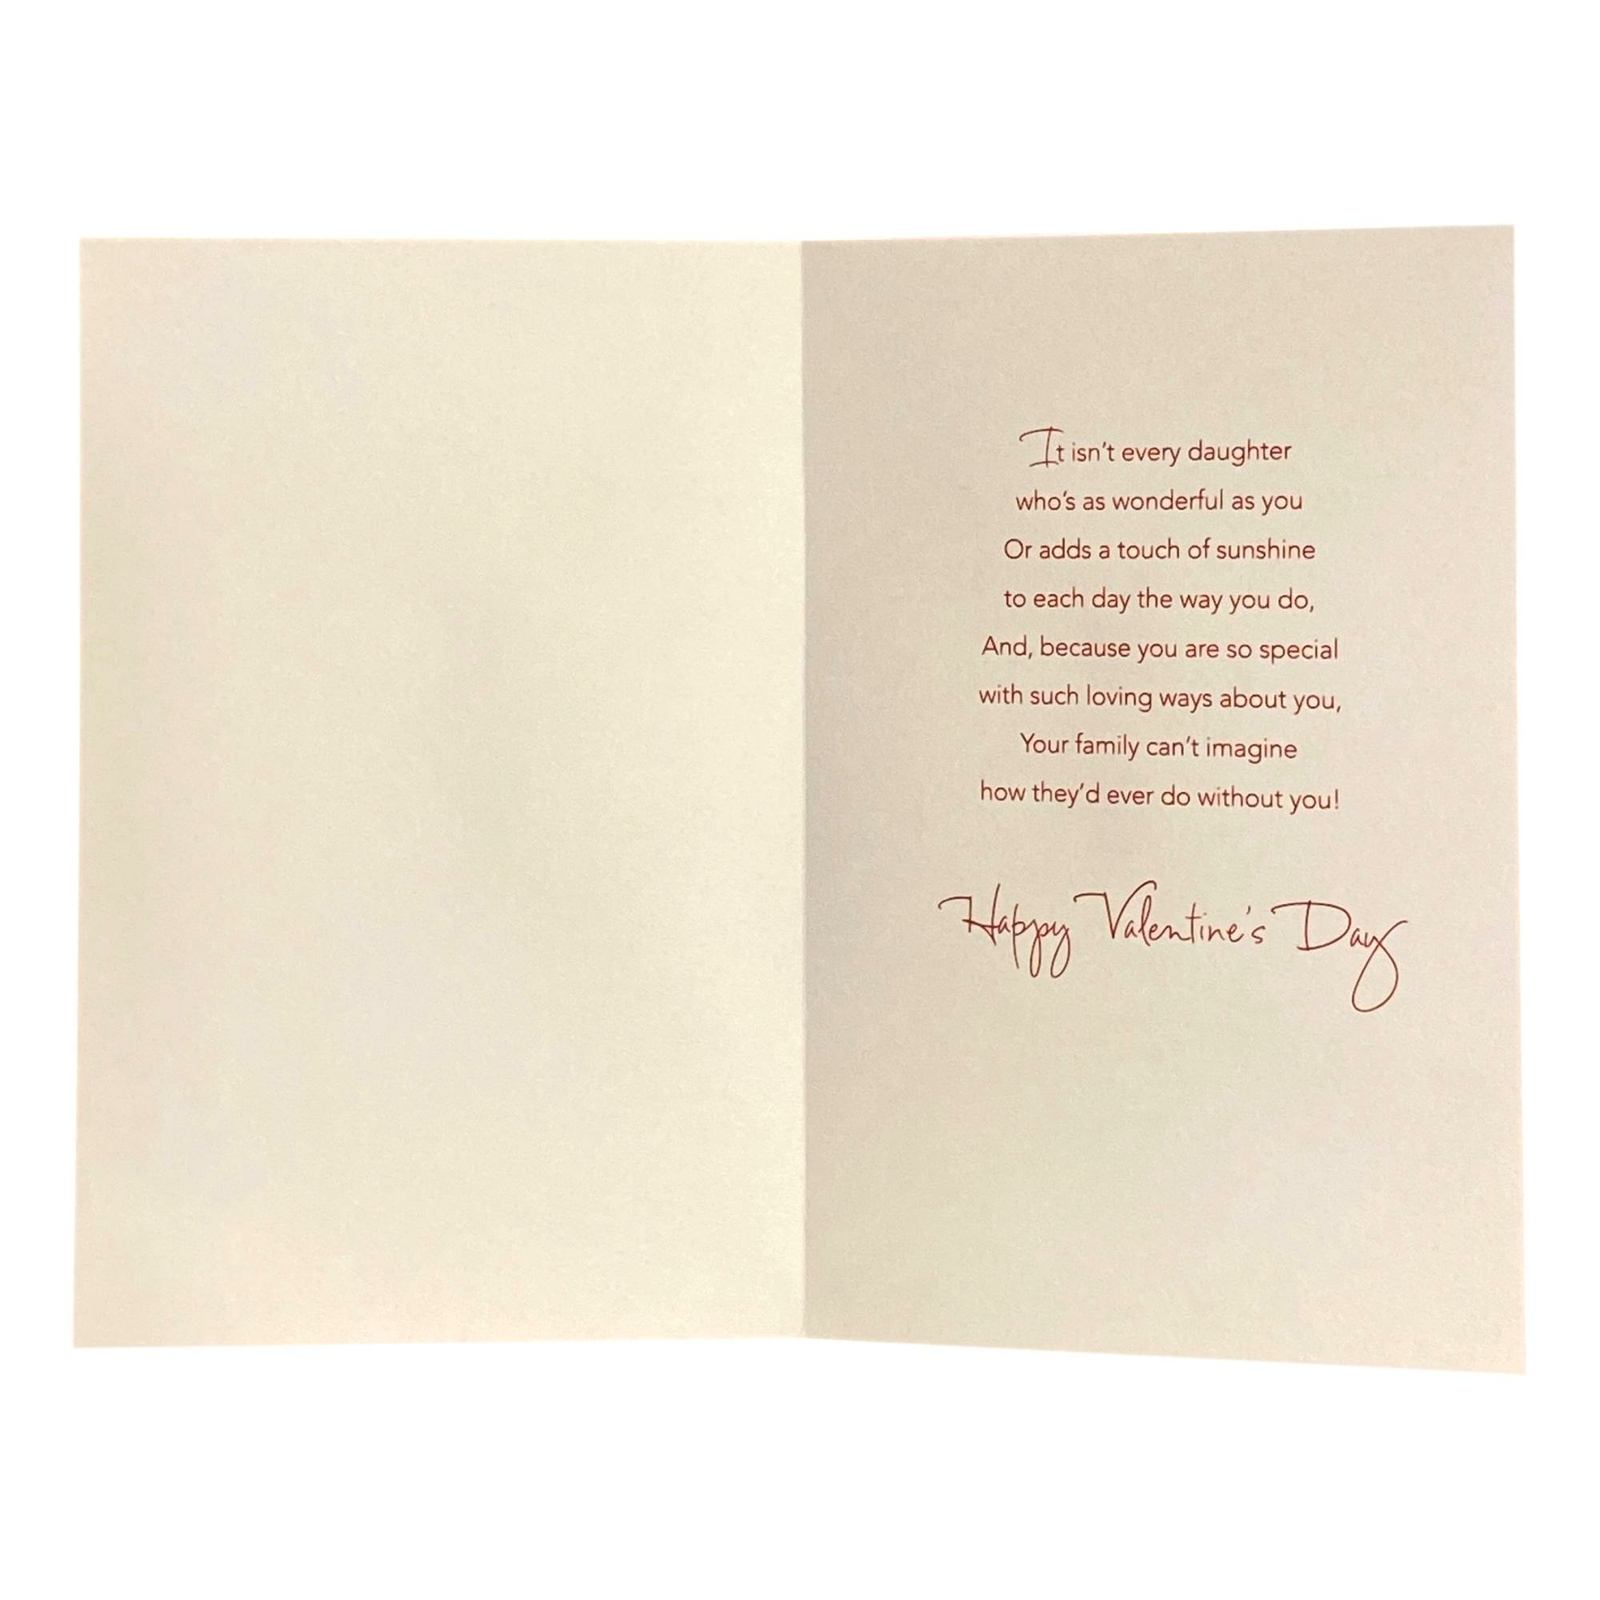 It isn't every daughter
who's as wonderful as you
Or adds a touch of sunshine
to each day the way you do,
And, because you are so special
with such loving ways about you,
Your family can't imagine
how they'd ever do without you!
Happy Valentine's Day